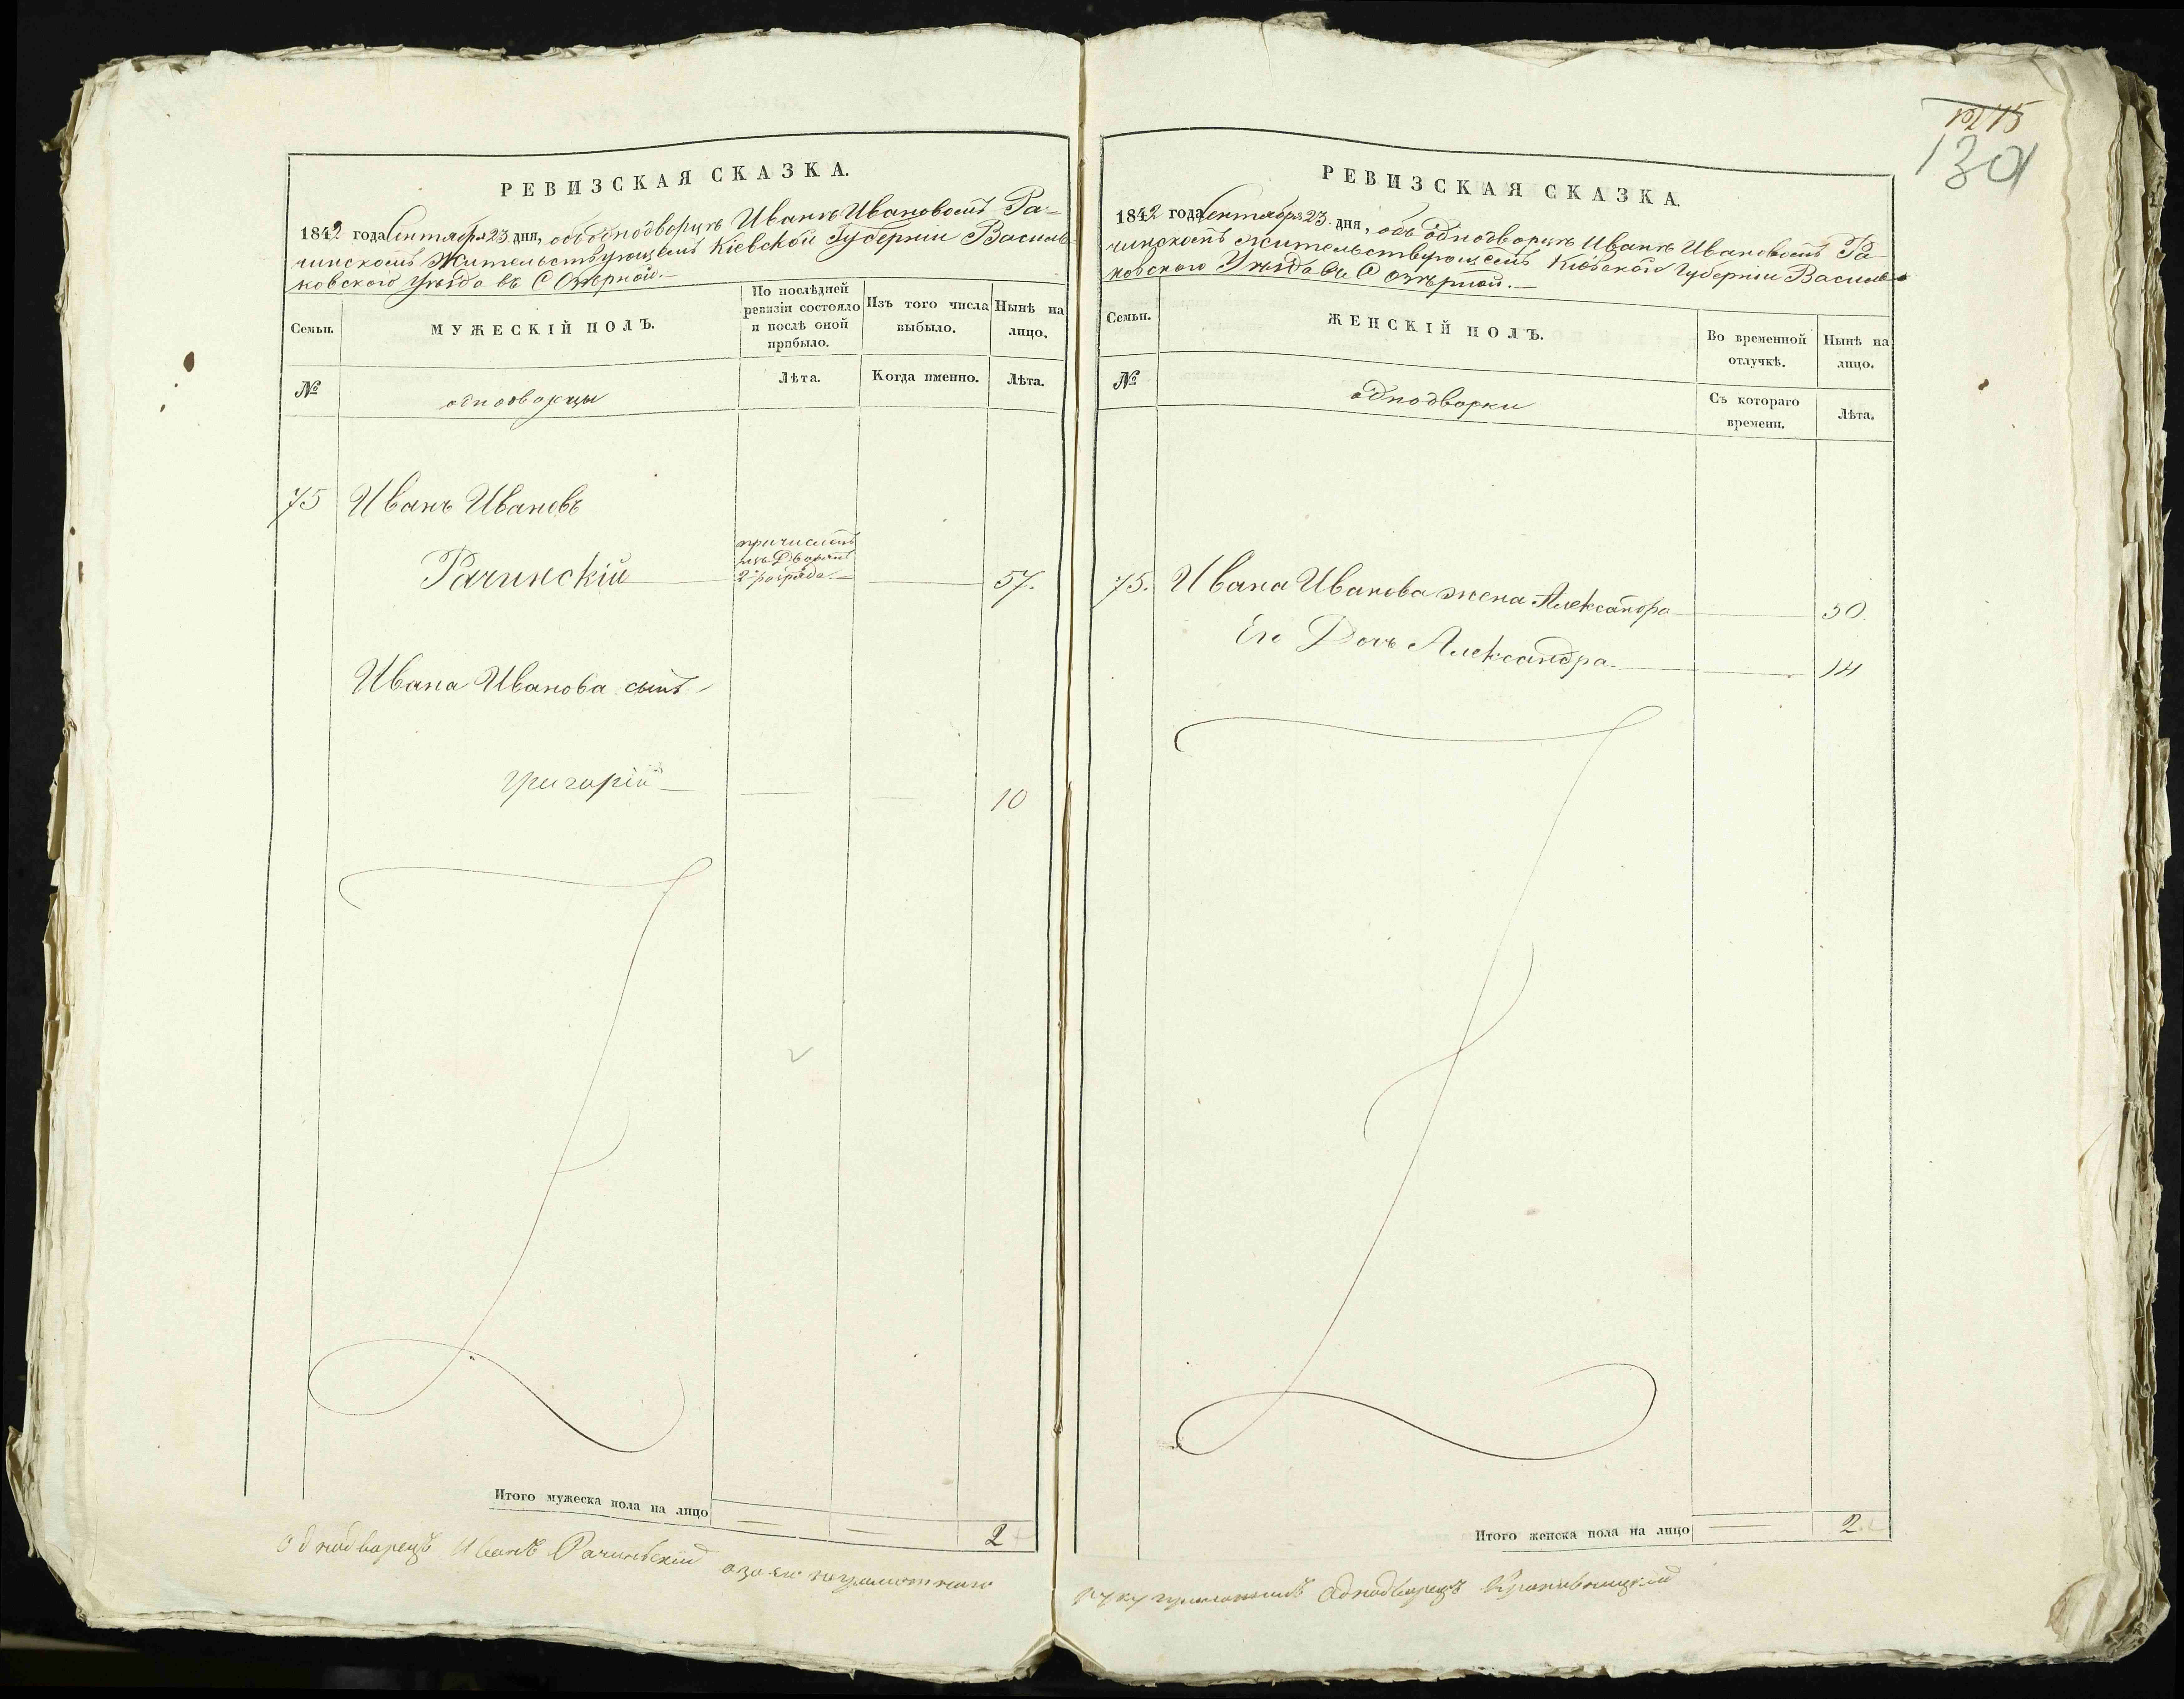 75
130
РЕВИЗСКАЯ СКАЗКА.
1842 года Сентября 23 дня, объ однодворцѣ Иванѣ Ивановомъ Ра-
чинскомъ Жительствующемъ Кіевской Губерніи Василь-
ковскаго Уѣзда въ С Озѣрной.—
Семьи.
МУЖЕСКІЙ ПОЛЪ.
По послѣдней
ревизіи состояло
и послѣ оной
прибыло.
Изъ того числа
выбыло.
Нынѣ на
лицо.
№
однодворцы
Лѣта.
Когда именно.
Лѣта.
75
Иванъ Ивановъ
Рачинскій
причислѣнъ
изъ Дворянъ
2 розряда.—
57.
Ивана Иванова сынъ
Григорій
10
Итого мужеска пола на лицо
2
однодворецъ Иванъ Рачиньскій
а за его неграмотнаго
РЕВИЗСКАЯ СКАЗКА.
1842 года Сентября 23 дня, объ однодворцѣ Иванѣ Ивановомъ Ра-
чинскомъ жительствующемъ Кіевской Губерніи Василь-
ковского Уѣзда въ С Озѣрной.—
Семьи.
ЖЕНСКІЙ ПОЛЪ.
Во временной
отлучкѣ.
Нынѣ на
лицо.
№
однодворки
Съ котораго
времени.
Лѣта.
75.
Ивана Иванова жена Александра
50.
Его Дочь Александра.
14
Итого женска пола на лицо
2
руку однодворецъ